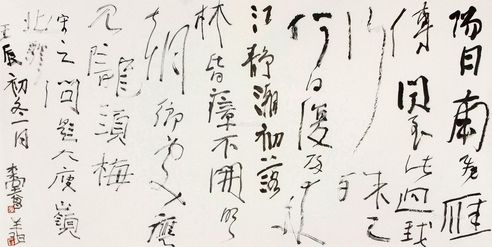 陽月南飛雁
傳聞至此迴我
行殊未已
何日復歸來
江靜潮初落
林昏瘴不開明
朝望鄉處應
見隴頭梅
宋之問題大庾嶺
北驛
壬辰初冬一月